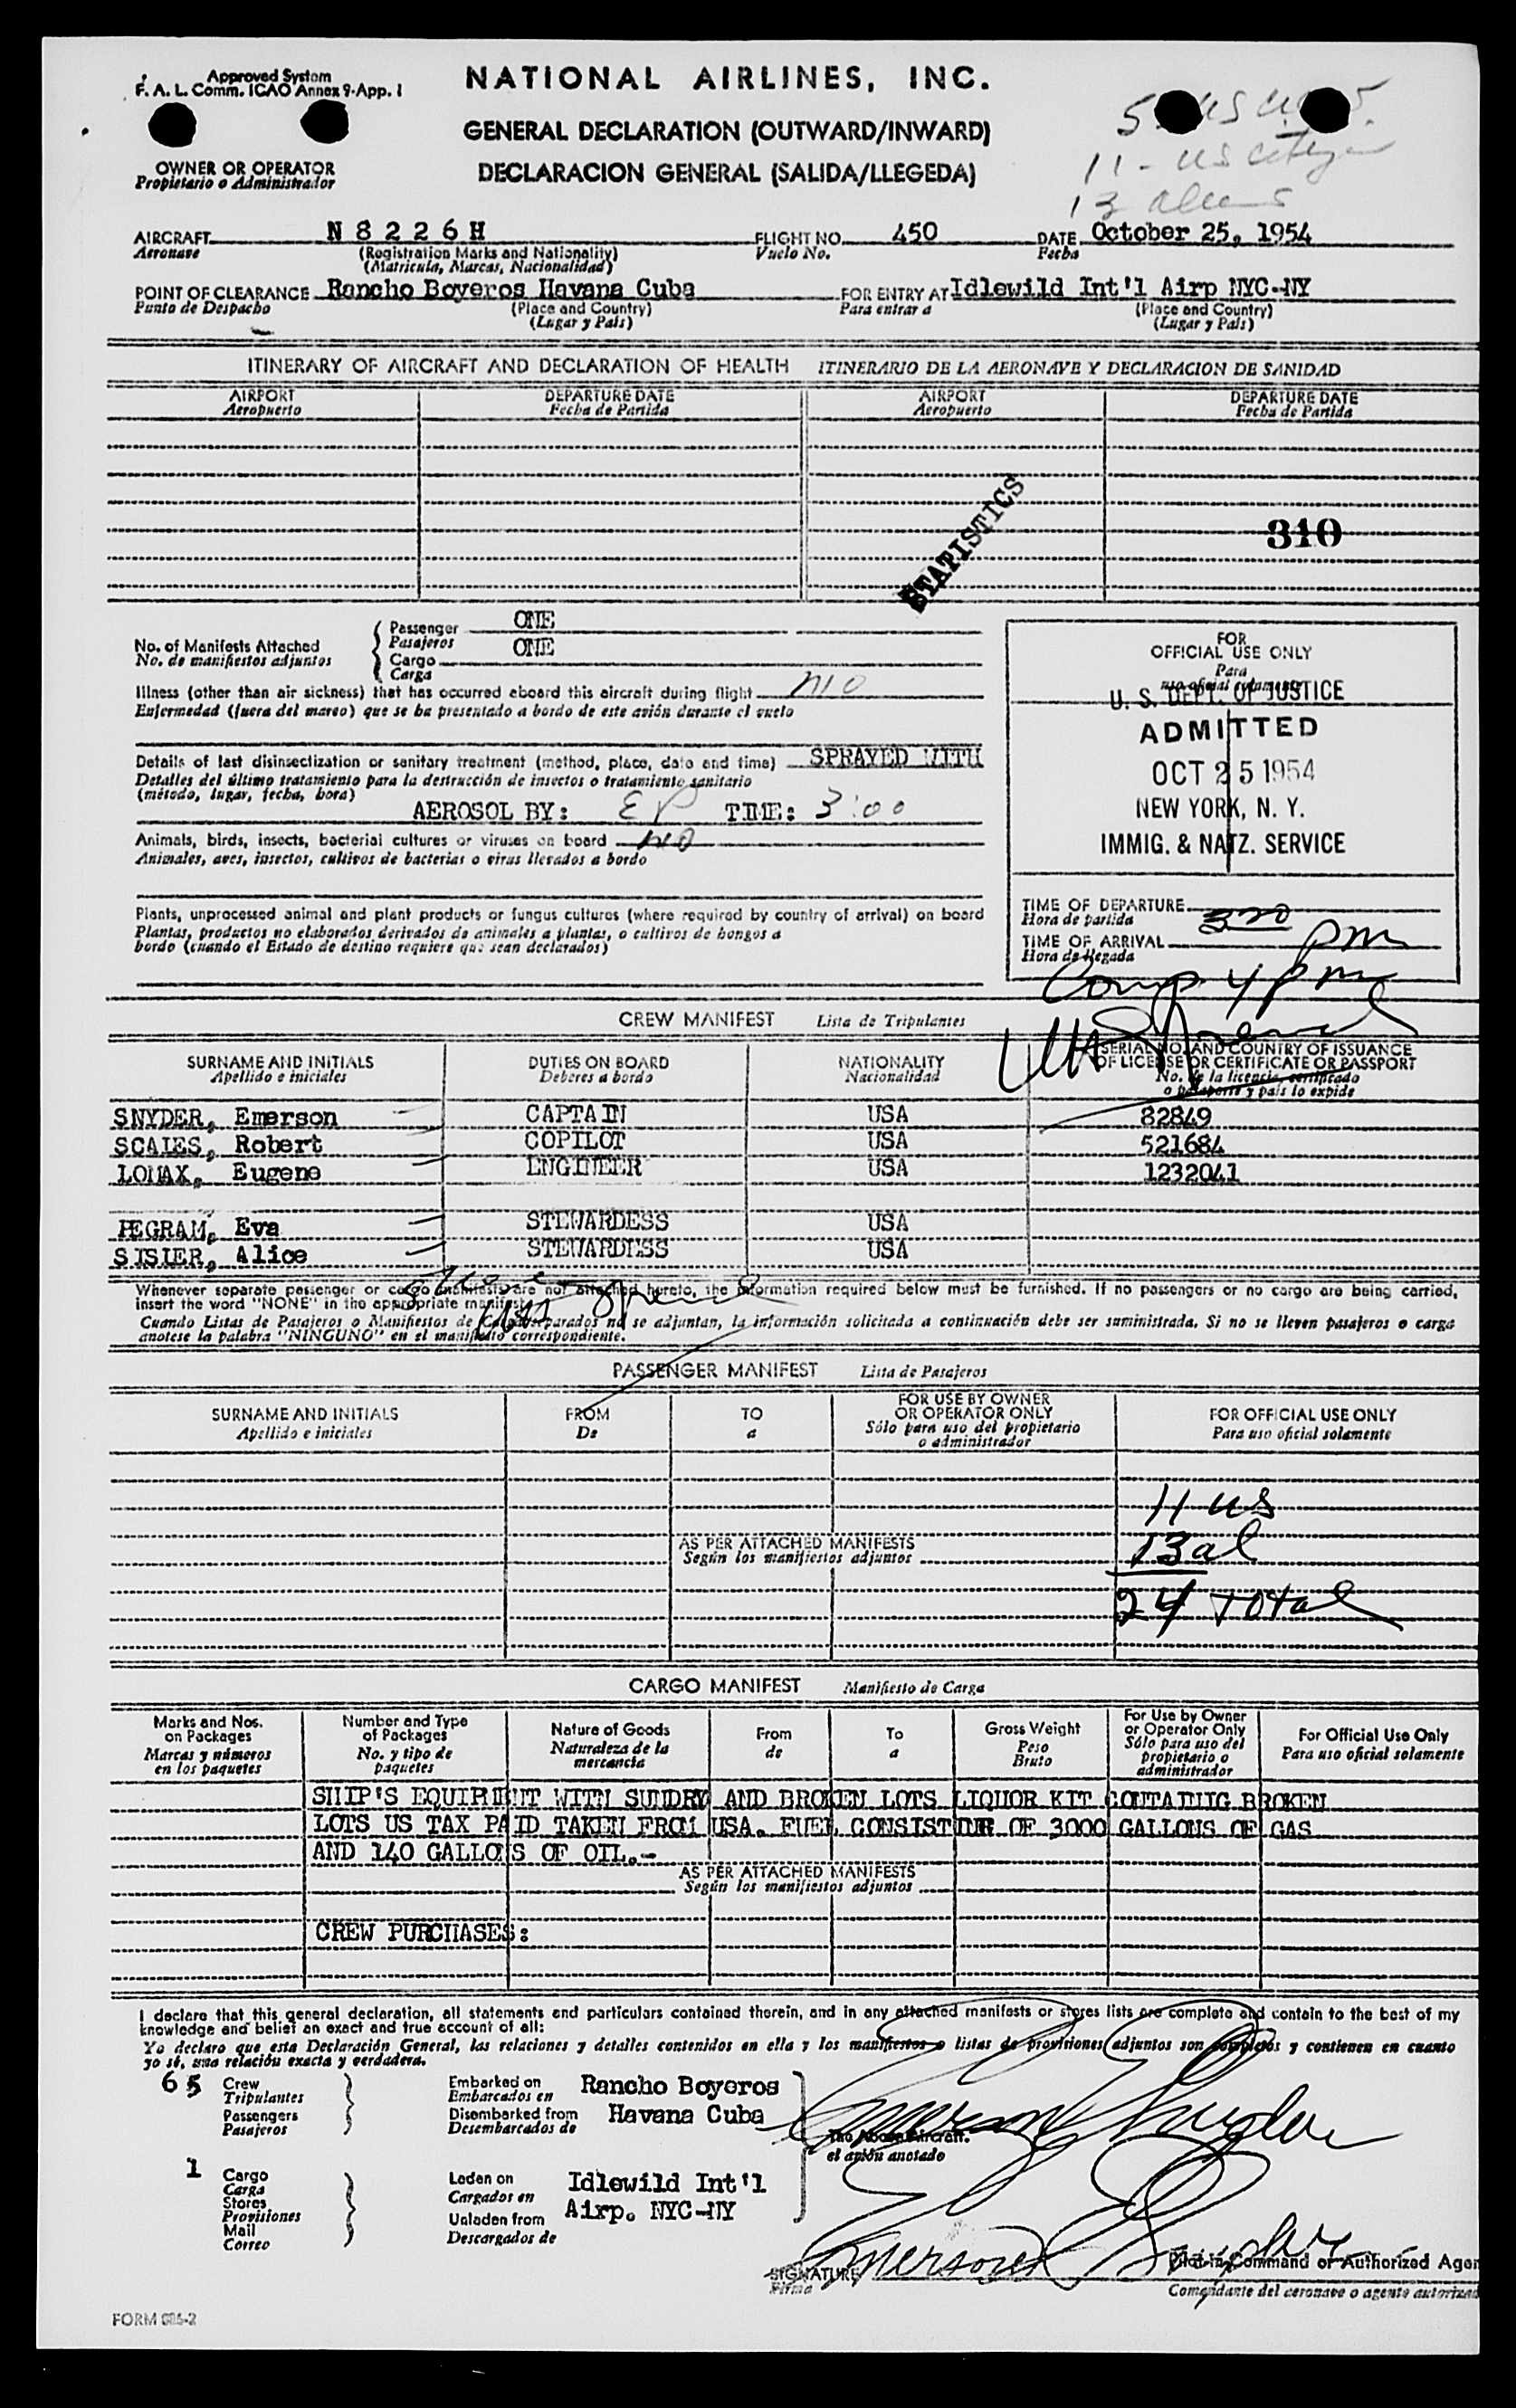 Approved System
F. A. L. Comm. ICAO Annex 9-App. I
NATIONAL AIRLINES, INC.
GENERAL DECLARATION (OUTWARD/INWARD)
DECLARACION GENERAL (SALIDA/LLEGEDA)
OWNER OR OPERATOR
Propietario o Administrador
11 - US citizen
13 aliens
AIRCRAFT N 8 2 2 6 H FLIGHT NO. 450 DATE October 25, 1954
Aeronave (Registration Marks and Nationality) Vuelo No. Fecha
(Matricula, Marcas, Nacionalidad)
POINT OF CLEARANCE Rancho Boyeros Havana Cuba FOR ENTRY AT Idlewild Int'l Airp NYC-NY
Punto de Despacho (Place and Country) Para entrar a (Place and Country)
(Lugar y País) (Lugar y País)
ITINERARY OF AIRCRAFT AND DECLARATION OF HEALTH ITINERARIO DE LA AERONAVE Y DECLARACION DE SANIDAD
AIRPORT DEPARTURE DATE AIRPORT DEPARTURE DATE
Aeropuerto Fecha de Partida Aeropuerto Fecha de Partida
STATISTICS
310
No. of Manifests Attached
No. de manifiestos adjuntos
Passenger ONE
Pasajeros
Cargo ONE
Carga
Illness (other than air sickness) that has occurred aboard this aircraft during flight NO
Enfermedad (fuera del mareo) que se ha presentado a bordo de este avión durante el vuelo
Details of last disinsectization or sanitary treatment (method, place, date and time) SPRAYED WITH
Detalles del último tratamiento para la destrucción de insectos o tratamiento sanitario
(método, lugar, fecha, hora)
AEROSOL BY: EP TIME: 3:00
Animals, birds, insects, bacterial cultures or viruses on board NO
Animales, aves, insectos, cultivos de bacterias o virus llevados a bordo
Plants, unprocessed animal and plant products or fungus cultures (where required by country of arrival) on board
Plantas, productos no elaborados derivados de animales a plantas, o cultivos de hongos a
bordo (cuando el Estado de destino requiere que sean declarados)
FOR
OFFICIAL USE ONLY
Para
uso oficial solamente
U. S. DEPT. OF JUSTICE
ADMITTED
OCT 25 1954
NEW YORK, N. Y.
IMMIG. & NATZ. SERVICE
TIME OF DEPARTURE
Hora de partida
320 pm
TIME OF ARRIVAL
Hora de llegada
Comp 4 pm
CREW MANIFEST Lista de Tripulantes
SURNAME AND INITIALS DUTIES ON BOARD NATIONALITY SERIAL NO. AND COUNTRY OF ISSUANCE
Apellido e iniciales Deberes a bordo Nacionalidad OF LICENSE OR CERTIFICATE OR PASSPORT
No. de la licencia, certificado
o pasaporte y país lo expide
SNYDER, Emerson CAPTAIN USA 82849
SCALES, Robert COPILOT USA 521684
LOMAX, Eugene ENGINEER USA 1232041
PEGRAM, Eva STEWARDESS USA
SISLER, Alice STEWARDESS USA
Whenever separate passenger or cargo manifests are not attached hereto, the information required below must be furnished. If no passengers or no cargo are being carried,
insert the word "NONE" in the appropriate manifest.
Cuando Listas de Pasajeros o Manifiestos de Carga separados no se adjuntan, la información solicitada a continuación debe ser suministrada. Si no se lleven pasajeros o carga
anotese la palabra "NINGUNO" en el manifiesto correspondiente.
PASSENGER MANIFEST Lista de Pasajeros
SURNAME AND INITIALS FROM TO FOR USE BY OWNER OR OPERATOR ONLY FOR OFFICIAL USE ONLY
Apellido e iniciales De a Sólo para uso del propietario o administrador Para uso oficial solamente
11 US
AS PER ATTACHED MANIFESTS 13 al
Según los manifiestos adjuntos
24 Total
CARGO MANIFEST Manifiesto de Carga
Marks and Nos. on Packages Number and Type of Packages Nature of Goods From To Gross Weight For Use by Owner or Operator Only For Official Use Only
Marcas y números en los paquetes No. y tipo de paquetes Naturaleza de la mercancia de a Peso Bruto Sólo para uso del propietario o administrador Para uso oficial solamente
SHIP'S EQUIPMENT WITH SUNDRY AND BROKEN LOTS LIQUOR KIT CONTAINIG BROKEN
LOTS US TAX PAID TAKEN FROM USA. FUEL CONSISTING OF 3000 GALLONS OF GAS
AND 140 GALLONS OF OIL.-
AS PER ATTACHED MANIFESTS
Según los manifiestos adjuntos
CREW PURCHASES:
I declare that this general declaration, all statements and particulars contained therein, and in any attached manifests or stores lists are complete and contain to the best of my
knowledge and belief an exact and true account of all:
Yo declaro que esta Declaración General, las relaciones y detalles contenidos en ella y los manifiestos o listas de provisiones adjuntos son completos y contienen en cuanto
yo sé, una relación exacta y verdadera.
65 Crew Embarked on Rancho Boyeros
Tripulantes Embarcados en
Passengers Disembarked from Havana Cuba
Pasajeros Desembarcados de
The Above Aircraft.
el avión anotado
Emerson Snyder
1 Cargo Laden on Idlewild Int'l
Carga Cargados en
Stores Airp. NYC-NY
Provisiones Unladen from
Mail Descargados de
Correo
SIGNATURE Emerson Snyder Pilot in Command or Authorized Agen
Firma Comandante del aeronave o agente autorizad
FORM